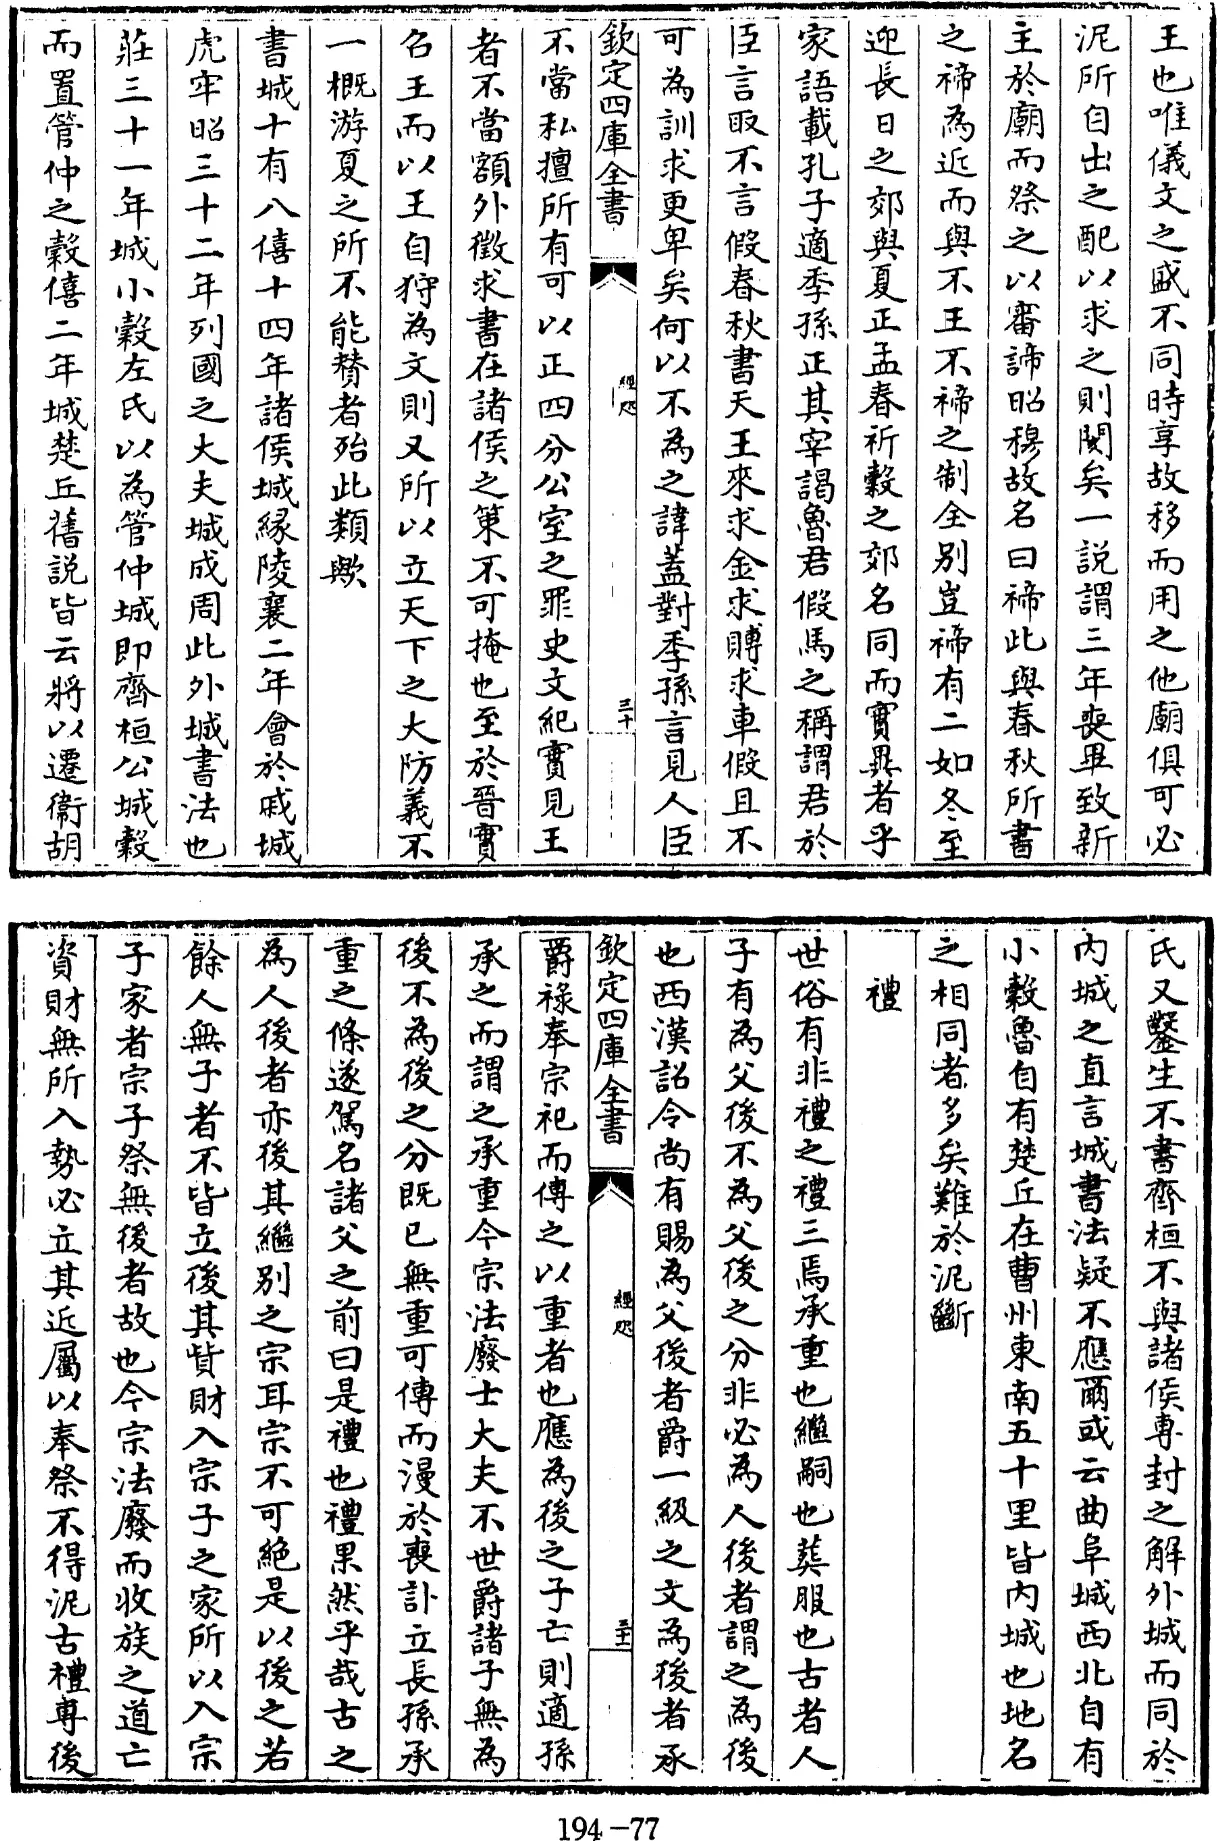 王也唯儀文之盛不同時享故移而用之他廟俱可必
泥所自出之配以求之則閡矣一説謂三年喪畢致新
主於廟而祭之以審諦昭穆故名曰禘此與春秋所書
之禘為近而與不王不禘之制全别豈禘有二如冬至
迎長日之郊與夏正孟春祈穀之郊名同而實異者乎
家語載孔子適季孫正其宰謁魯君假馬之稱謂君於
臣言取不言假春秋書天王來求金求賻求車假且不
可為訓求更卑矣何以不為之諱葢對季孫言見人臣
欽定四庫全書
經咫
三十
不當私擅所有可以正四分公室之罪史文紀實見王
者不當額外徵求書在諸侯之策不可掩也至於晉實
召王而以王自狩為文則又所以立天下之大防義不
一概游夏之所不能賛者殆此類歟
書城十有八僖十四年諸侯城緣陵襄二年會於戚城
虎牢昭三十二年列國之大夫城成周此外城書法也
莊三十一年城小穀左氏以為管仲城即齊桓公城穀
而置管仲之穀僖二年城楚丘舊説皆云將以遷衞胡
氏又鑿生不書齊桓不與諸侯專封之解外城而同於
内城之直言城書法疑不應爾或云曲阜城西北自有
小穀魯自有楚丘在曹州東南五十里皆内城也地名
之相同者多矣難於泥斷
禮
世俗有非禮之禮三焉承重也繼嗣也葬服也古者人
子有為父後不為父後之分非必為人後者謂之為後
也西漢詔令尚有賜為父後者爵一級之文為後者承
欽定四庫全書
經咫
三十一
爵祿奉宗祀而傳之以重者也應為後之子亡則適孫
承之而謂之承重今宗法廢士大夫不世爵諸子無為
後不為後之分既已無重可傳而漫於喪訃立長孫承
重之條遂駕名諸父之前曰是禮也禮果然乎哉古之
為人後者亦後其繼别之宗耳宗不可絶是以後之若
餘人無子者不皆立後其貲財入宗子之家所以入宗
子家者宗子祭無後者故也今宗法廢而收族之道亡
資財無所入勢必立其近屬以奉祭不得泥古禮專後
194-77